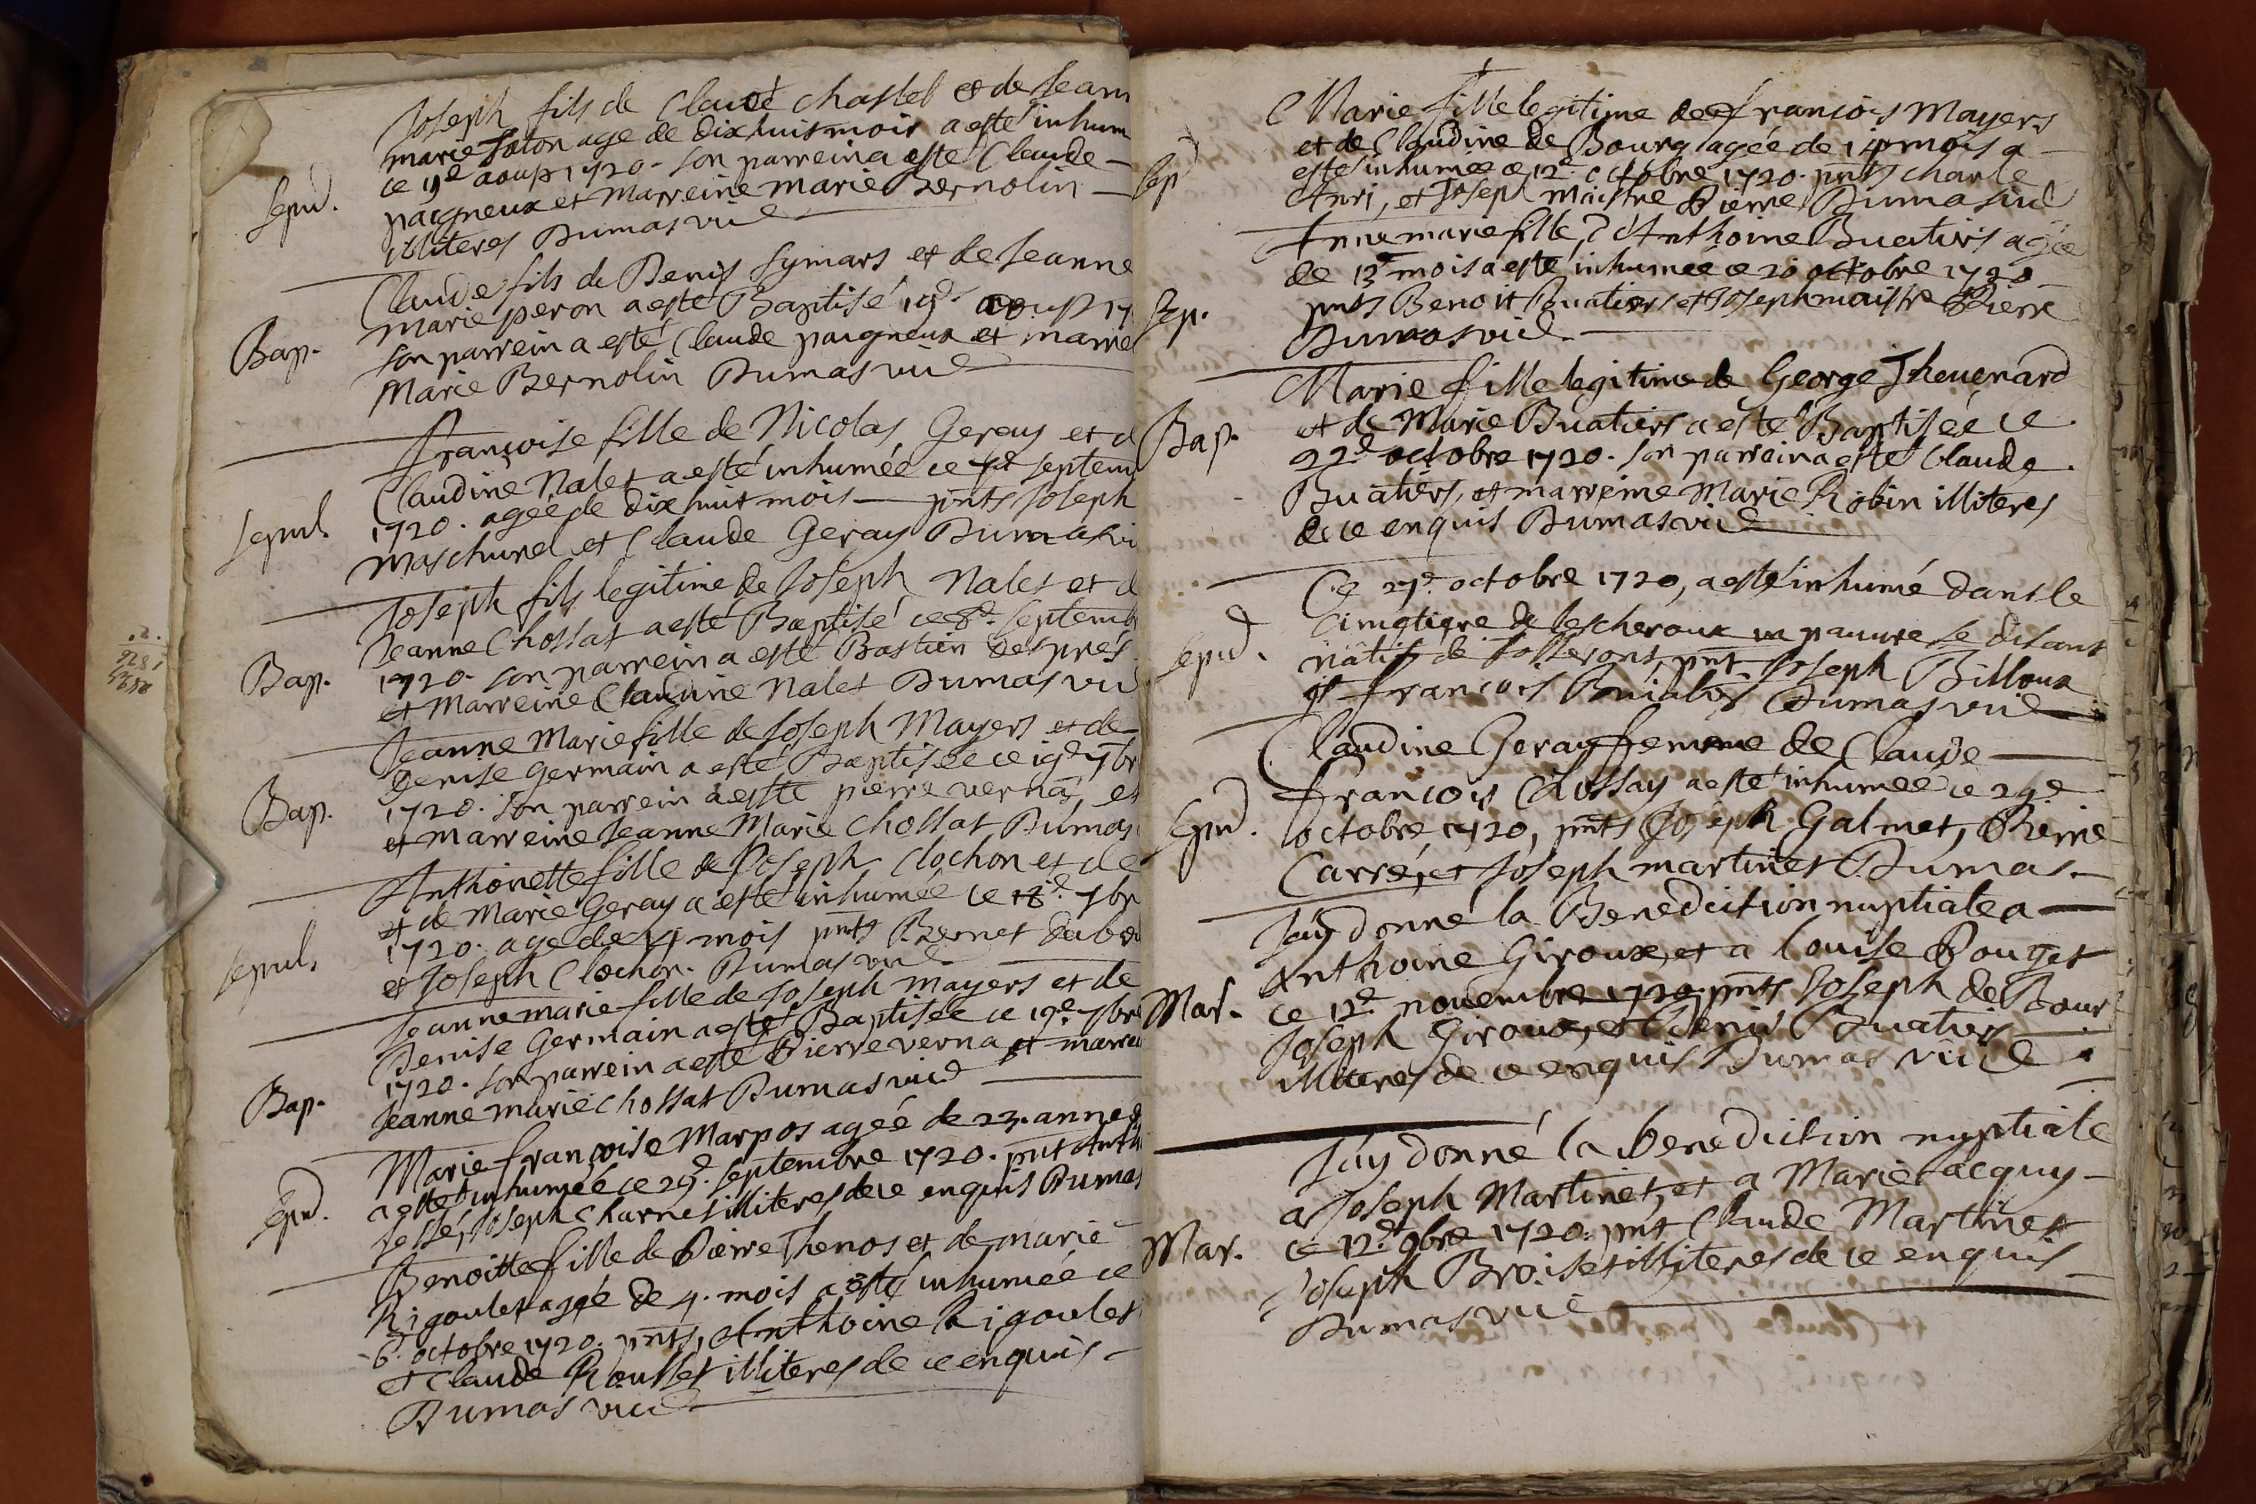 Joseph fils de Claude chastel et de Jean
marie age de dix huis mois a esté inhum
ce 19e aoust 1720. son parrein a esté Claude
Sepud. paigneux et Marreine marie Bernolin
illiteres Dumas vic
Claude fils de Denis Symars et de Jeanne
marie peron a esté Baptisé 19e aoust 17
Bap. son parrein a esté Claude paigneux et marre
Marie Bernolin Dumas vic
françoise fille de Nicolas Geray et d
Claudine Nalet a esté inhumée ce septem
Sepul. 1720. agée de dix huit mois pnts Joseph
maschurel et Claude Geray Dumas vi
Joseph fils legitime de Joseph Nalet et d
Jeanne Chossat a esté Baptisé ce 8e. septemb
Bap. 1720. son parrein a esté Bastien des prés
et Marreine Claudine Nalet Dumas vic
Jeanne Marie fille de Joseph Mayers et de
Denise Germain a esté Baptisée ce 19e 7br
Bap. 1720. son parrein a este pierre verna, et
et marreine Jeanne Marie Chossat Dumas
Anthoinette fille de Joseph Clochon et de
et de Marie Geray a este inhumée ce 18e. 7br
Sepul. 1720. age de mois pnts Bernet
et Joseph Clochon. Dumas vic
Jeanne marie fille de Joseph mayers et de
Denise Germain a esté Baptisée ce 19e. 7bre
1720. son parrein a esté Pierre verna et marrei
Bap. Jeanne marie Chossat Dumas vic
Marie françoise Marpos agée de 23. année
a esté inhumée ce 29e. septembre 1720. pnt Anth
Sepud. Joseph Charnet illiteres de ce enquis Dumas
Benoitte fille de Pierre Thenos et de marie
Rigoulet agée de 4. mois a esté inhumée ce
6e. octobre 1720. pnts, Anthoine Rigoulet
et Claude Rousset illiteres de ce enquis
Dumas vic
Marie fille legitime de françois Mayers
et de Claudine de Bourg agée de mois a
Sep esté inhumée ce 12e octobre 1720. pnts Charle
Anri, et Joseph maistre Pierre Dumas vic
Anne marie fille d'Anthoine Buatiers agée
de 13e mois a esté inhumée ce 20 octobre 1720
Sep. pnts Benoit Buatiers et Joseph maistre Pierre
Dumas vic
Marie fille legitime de George Thevenard
et de Marie Buatiers a esté Baptisée ce
Bap. 22e octobre 1720. son parrein a esté Claude
Buatiers, et marreine Marie Robin illiteres
de ce enquis Dumas vic
Ce 27e. octobre 1720, a esté inhumé dans le
Cimetiere de lescheroux un pauvre se disant
Sepud. natif de pnt Joseph Billoux
et françois Dumas vic
Claudine Geray femme de Claude
françois Chossay a esté inhumée ce 29e
Sepud. octobre 1720, pnts Joseph Galmet, Pierre
Carré, et Joseph martinet Dumas
J'ay donné la Benediction nuptiale a
Anthoine Giroux, et a Louise Pouget
Mar. ce 12e novembre 1720. pnts Joseph de Bour
Joseph Giroux, et Denis Buatiers
illiteres de ce enquis Dumas vic
J'ay donné la benediction nuptiale
a Joseph Martinet, et a Marie Jacquy
Mar. ce 12e. 9bre 1720. pnt Claude Martinet
Joseph Broiset illiteres de ce enquis
Dumas vic